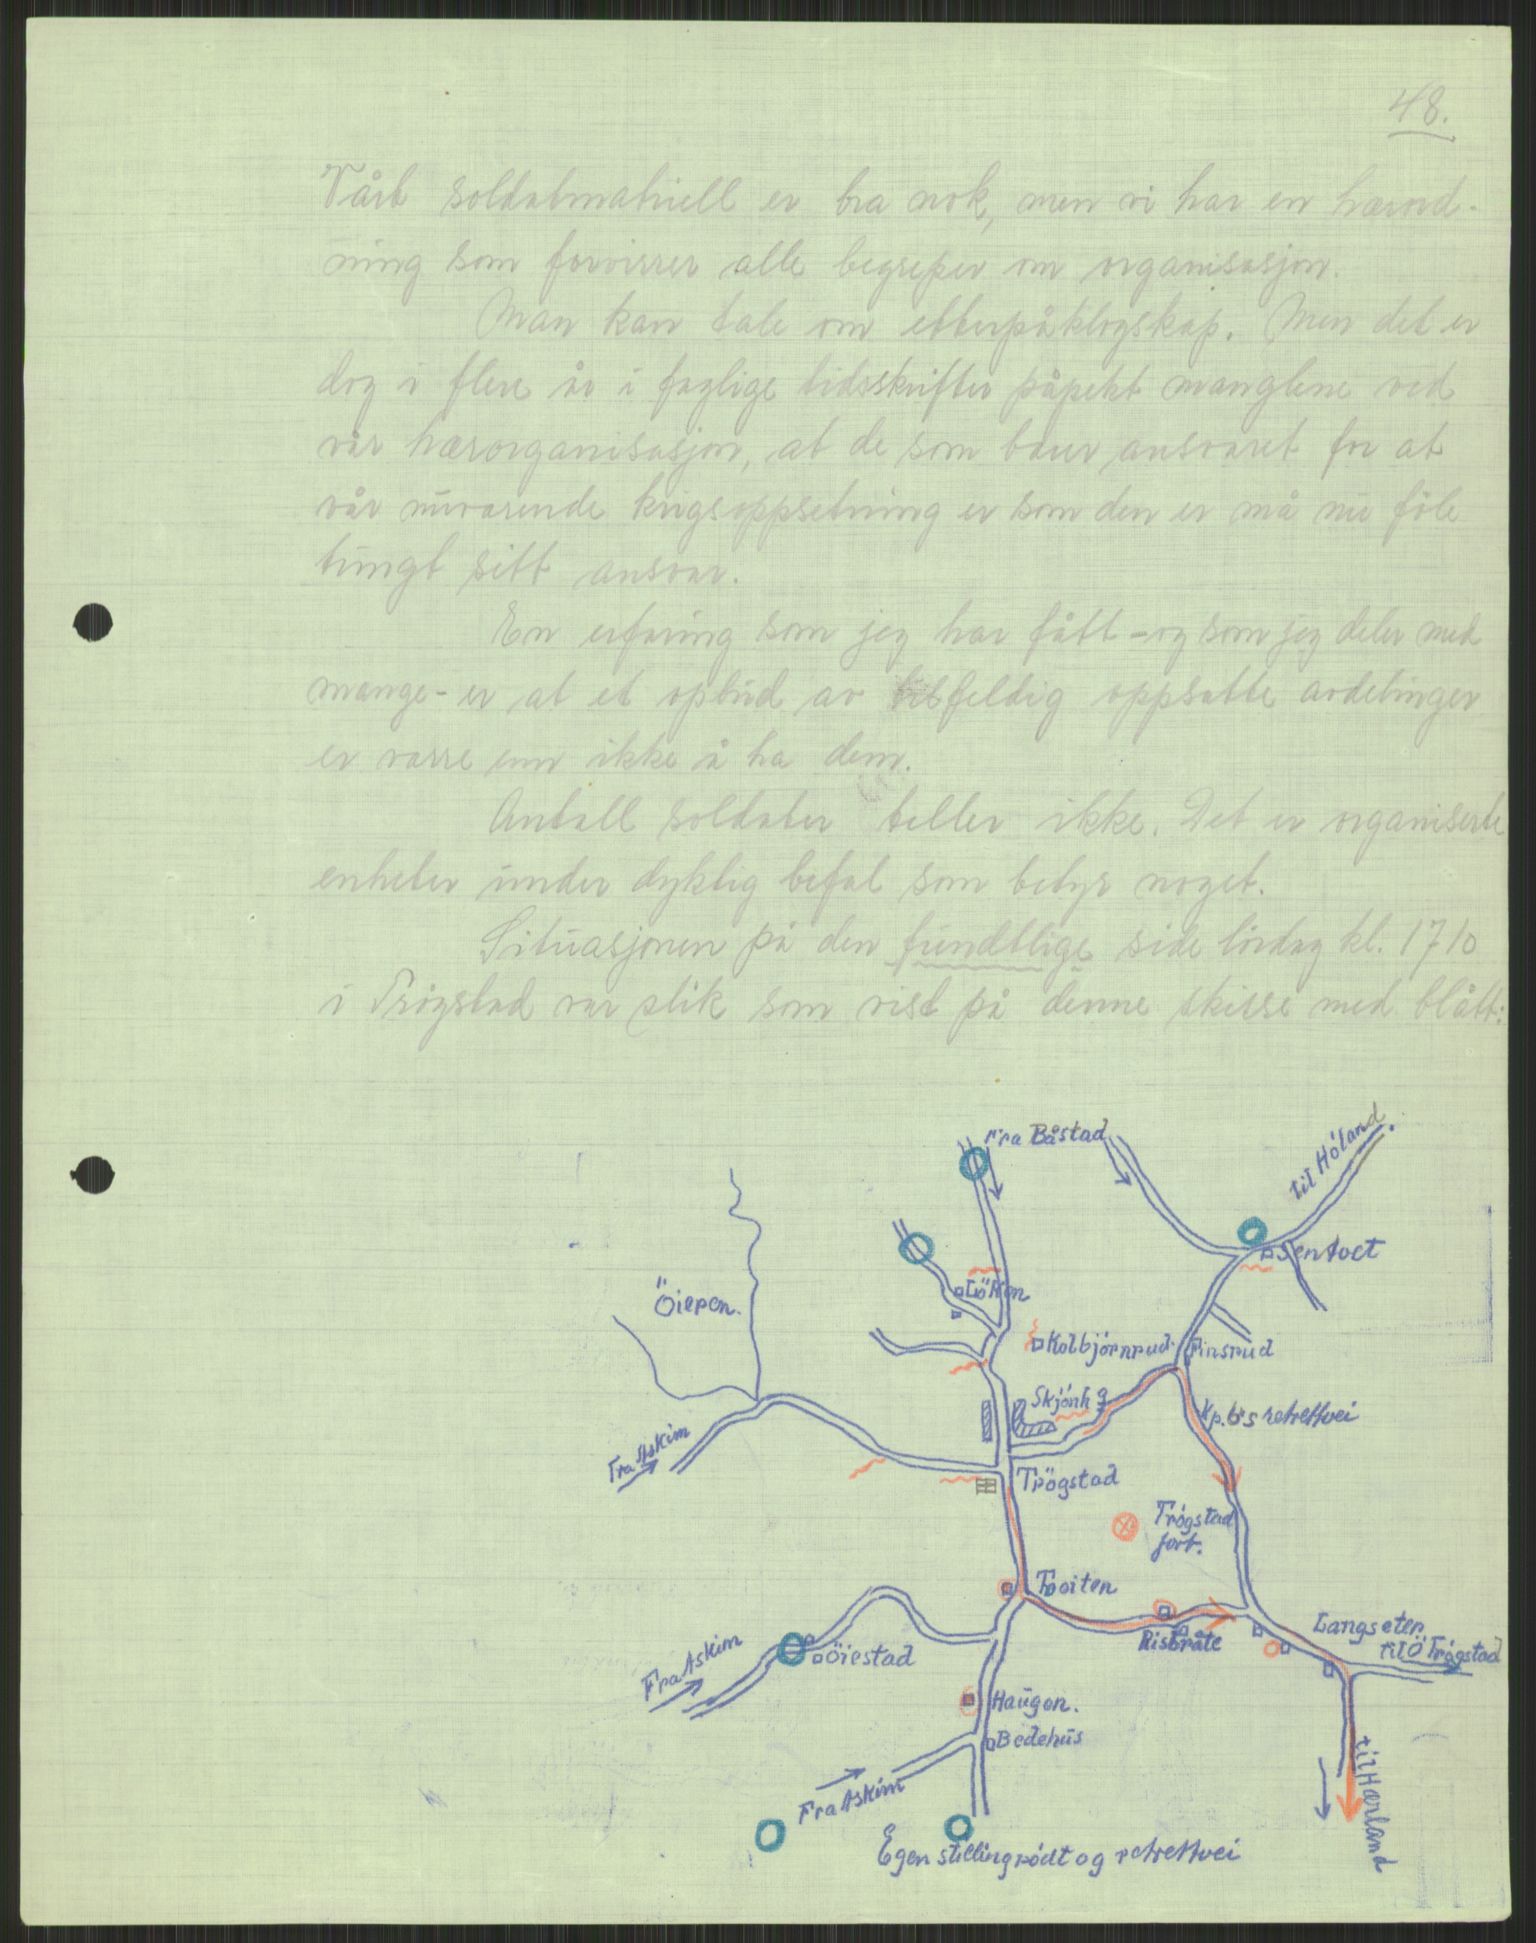 48.
Vårt soldatmatriell er bra nok, men vi har en hærord-
ning som forvirrer alle begreper om organisasjon.
Man kan tale om etterpåklogskap. Men det er
dog i flere år i faglige tidsskrifter påpekt manglene ved
vår hærorganisasjon, at de som bærer ansvaret for at
vår nuværende krigsoppsetning er som den er må nu föle
tungt sitt ansvar.
En erfaring som jeg har fått - og som jeg deler med
mange - er at et opbud av tilfeldig oppsatte avdelinger
er værre enn ikke å ha dem.
Antall soldater teller ikke. Det er organiserte
enheter under dyktig befal som betyr noget.
Situasjonen på den fiendtlige side lördag kl. 1710
i Trögstad var slik som vist på denne skisse med blått:
Fra Båstad
til Höland
Sentvet
Öieren.
Lökken
Kolbjörnrud
Finsrud
Skjönh
Kp. 6's retrettvei
Fra Askim
Trögstad
Trögstad
fort.
Tooiten
Langseter
Risbråte
til Ö Trögstad
Fra Askim
Öiestad
Haugen.
Bedehus
Fra Askim
til Hærland
Egen stilling rödt og retrettvei